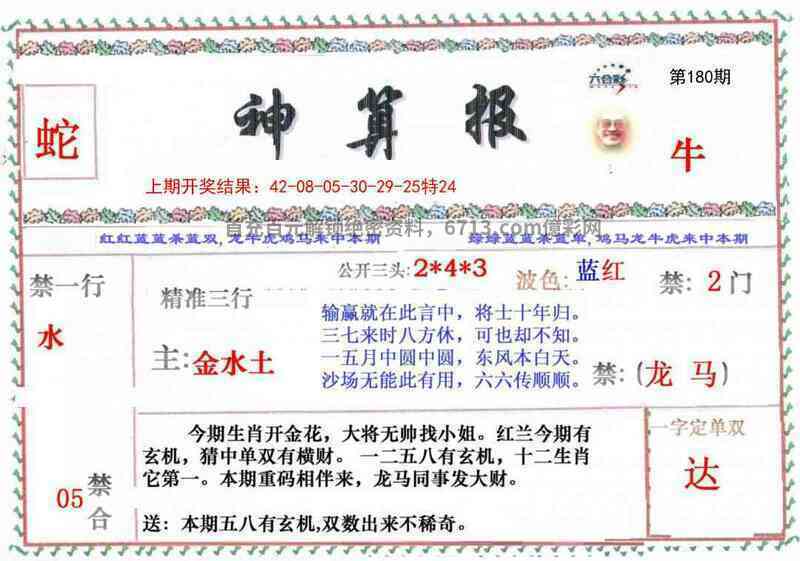 六合彩
第180期
蛇
神算报
牛
上期开奖结果：42-08-05-30-29-25特24
首充百元解锁绝密资料，6713.com億彩网
红红蓝蓝杀蓝双,龙牛虎鸡马来中本期
绿绿蓝蓝杀蓝单,鸡马龙牛虎来中本期
禁一行
水
精准三行
主:金水土
公开三头:2*4*3
波色:蓝红
禁: 2门
输赢就在此言中，将士十年归。
三七来时八方休，可也却不知。
一五月中圆中圆，东风本白天。
沙场无能此有用，六六传顺顺。
禁:(龙 马)
05
禁合
今期生肖开金花，大将无帅找小姐。红兰今期有
玄机，猜中单双有横财。 一二五八有玄机，十二生肖
它第一。本期重码相伴来，龙马同事发大财。
送：本期五八有玄机,双数出来不稀奇。
一字定单双
达